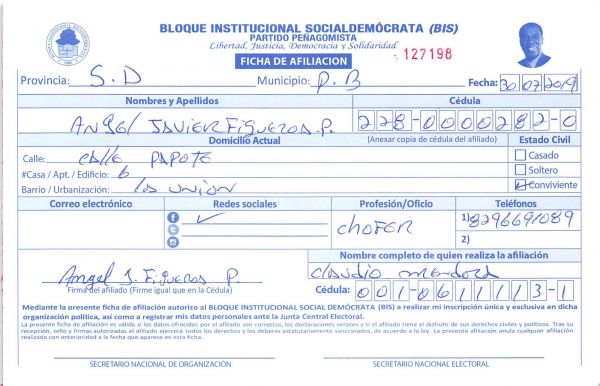 BLOQUE INSTITUCIONAL SOCIALDEMÓCRATA (BIS)
PARTIDO PEÑAGOMISTA
Libertad, Justicia, Democracia y Solidaridad
FICHA DE AFILIACION
127198
Provincia: S.D Municipio: P.B Fecha: 30 07 2019
Nombres y Apellidos Cédula
Angel Javier Figueroa P. 228-0000282-0
Domicilio Actual (Anexar copia de cédula del afiliado) Estado Civil
Calle: Calle PAPOTE Casado
#Casa / Apt. / Edificio: 6 Soltero
Barrio / Urbanización: La Union Conviviente
Correo electrónico Redes sociales Profesión/Oficio Teléfonos
CHOFER 1) 8296691089
2)
Nombre completo de quien realiza la afiliación
Claudio Mendoza
Angel J. Figueroa P.
Firma del afiliado (Firme igual que en la Cédula) Cédula: 001-0611113-1
Mediante la presente ficha de afiliación autorizo al BLOQUE INSTITUCIONAL SOCIAL DEMÓCRATA (BIS) a realizar mi inscripción única y exclusiva en dicha
organización política, así como a registrar mis datos personales ante la Junta Central Electoral.
La presente ficha de afiliación es válida si los datos ofrecidos por el afiliado son correctos, las declaraciones veraces y si el afiliado tiene el disfrute de sus derechos civiles y políticos. Tras su
recepción, sello y firmas autorizadas el afiliado ejercerá todos los derechos y los deberes estatutariamente sancionados, de acuerdo a la ley. La presente afiliación anula cualquier afiliación
realizada con anterioridad a la fecha que aparece en esta ficha.
SECRETARIO NACIONAL DE ORGANIZACIÓN SECRETARIO NACIONAL ELECTORAL